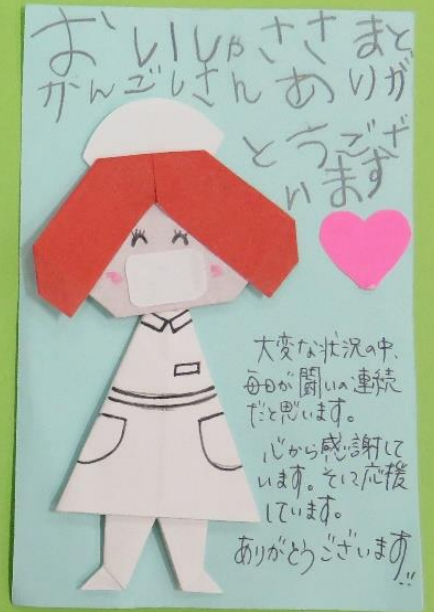 おいしゃささまと、
かんごしさんありが
とうござ
います
大変な状況の中、
毎日が闘いの連続
だと思います。
心から感謝して
います。そして応援
しています。
ありがとうございます!!